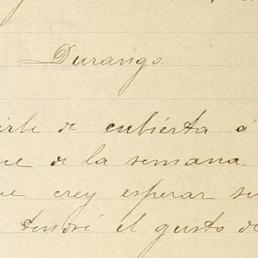 Durango.
irle de cubierta á
ue de la semana.
ue crey esperar su
tendré el gusto de